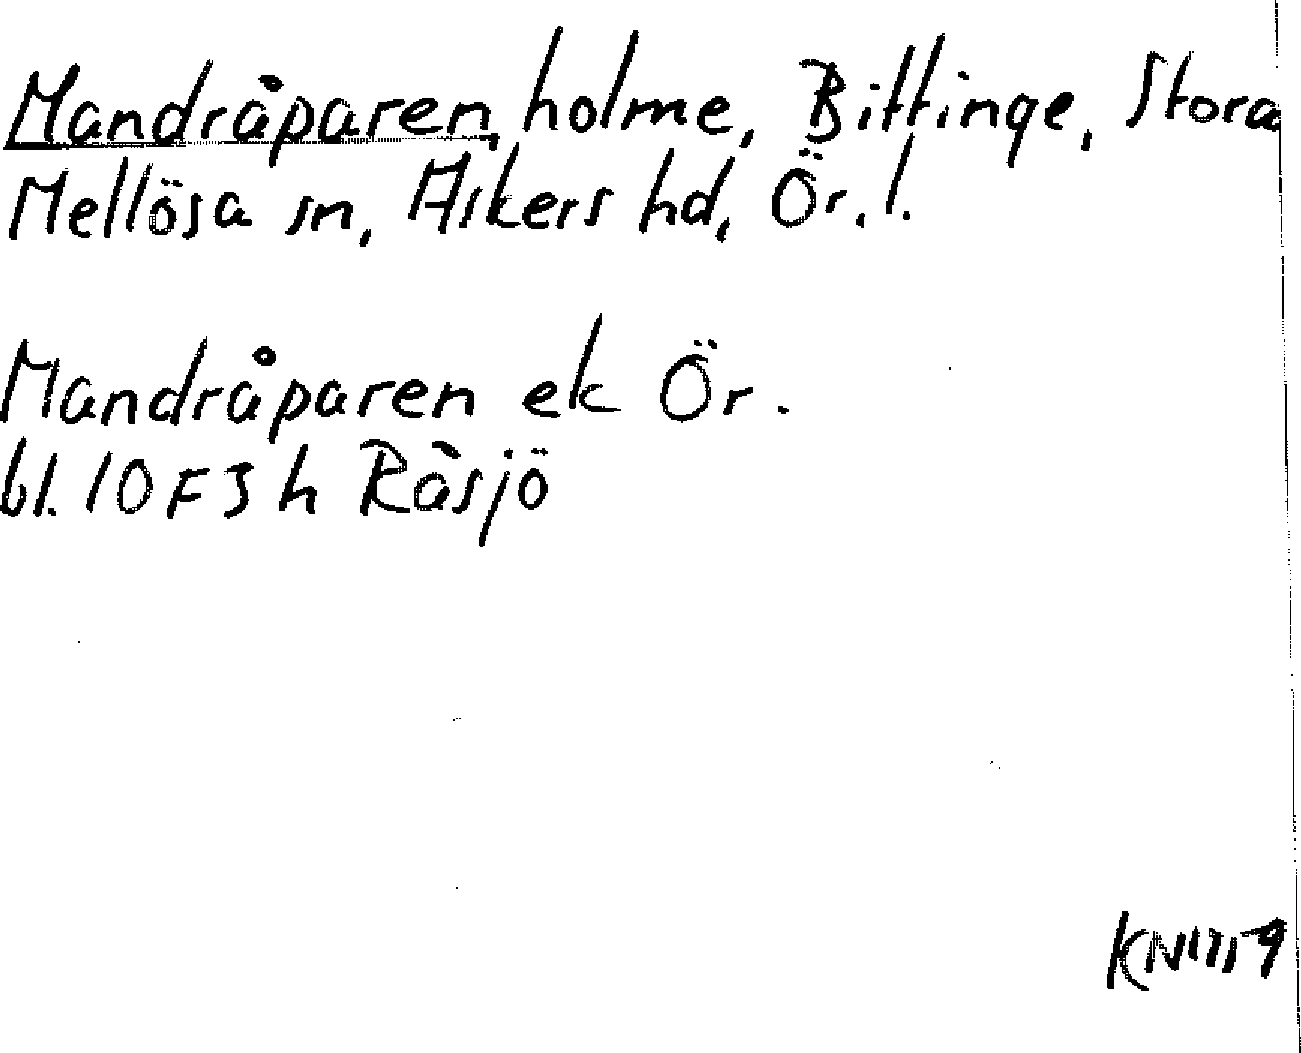 Mandråparen, holme, Bittinge, Stora
Mellösa sn, Askers hd, Ör. l.
Mandråparen ek Ör.
bl. 10F3h Råsjö